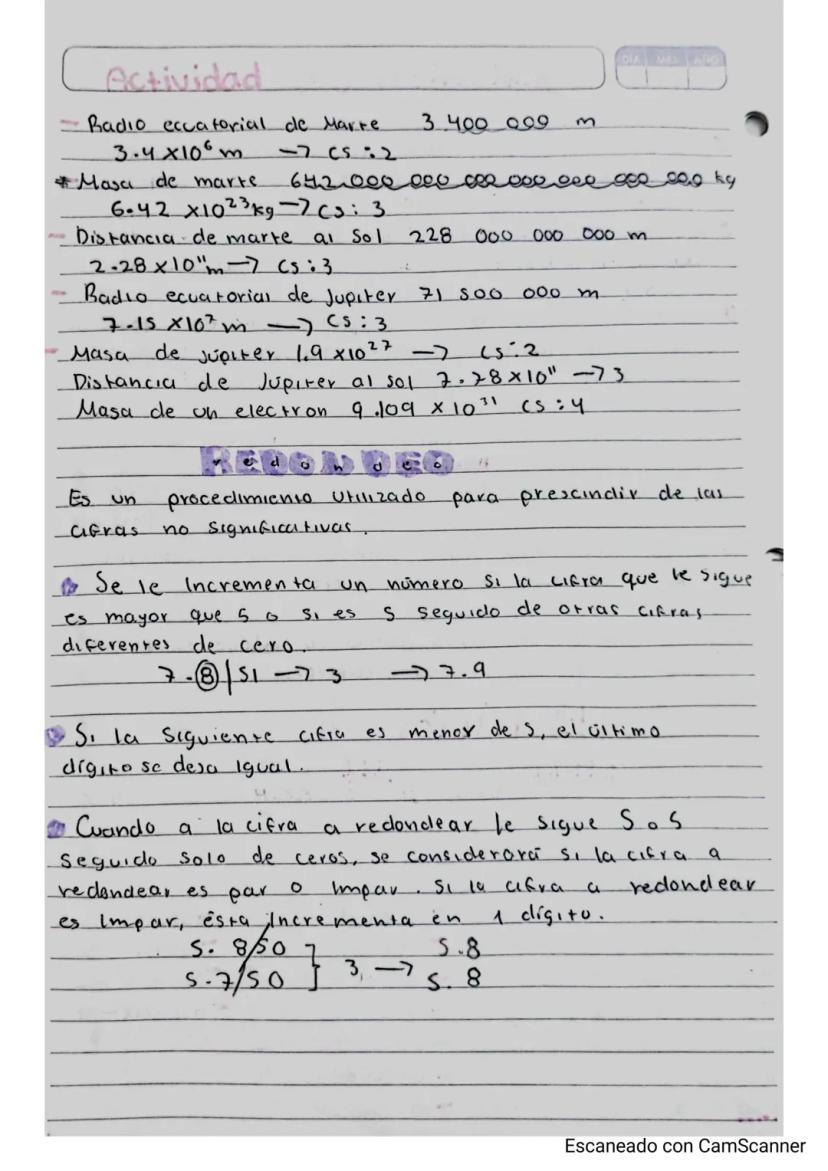 Actividad
DIA MES AÑO
- Radio ecuatorial de Marte 3 400 000 m
3.4 x10⁶ m → cs : 2
* Masa de marte 642 000 000 000 000 000 000 000 kg
6.42 x10²³ kg → cs : 3
- Distancia de marte al Sol 228 000 000 000 m
2.28 x 10¹¹ m → cs : 3
- Radio ecuatorial de Jupiter 71 500 000 m
7.15 x10⁷ m → cs : 3
- Masa de jupiter 1.9 x10²⁷ → cs : 2
Distancia de Jupiter al sol 7.78 x 10¹¹ → 3
Masa de un electron 9.109 x 10³¹ cs : 4
REDONDEO
Es un procedimiento utilizado para prescindir de las
cifras no significativas.
Se le incrementa un número si la cifra que le sigue
es mayor que 5 o si es 5 seguido de otras cifras
diferentes de cero.
7.8|51 → 3 → 7.9
Si la siguiente cifra es menor de 5, el último
dígito se deja igual.
Cuando a la cifra a redondear le sigue 5 o 5
seguido solo de ceros, se considerará si la cifra a
redondear es par o impar. Si la cifra a redondear
es impar, ésta incrementa en 1 dígito.
5. 8/50 ] 5.8
5.7/50 ] 3, → 5. 8
Escaneado con CamScanner